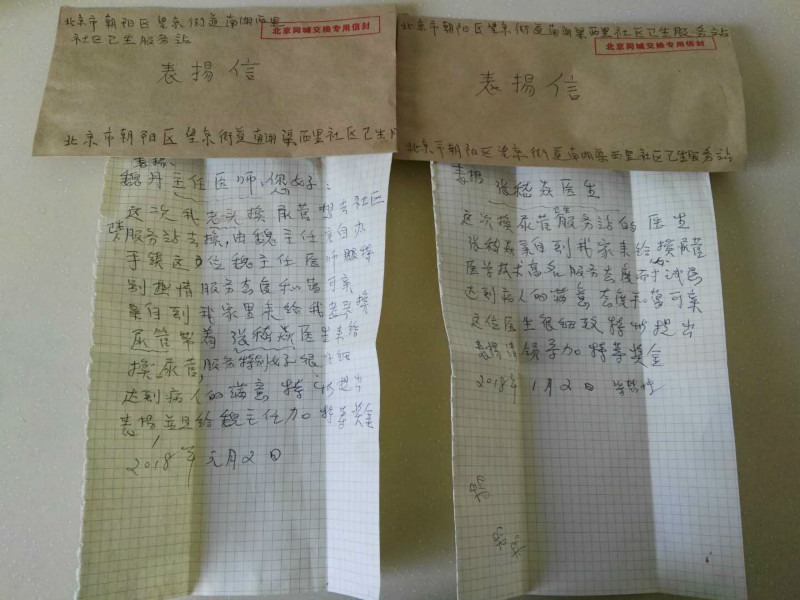 北京市朝阳区望京街道南湖西里
社区卫生服务站
北京同城交换专用信封
表揚信
北京市朝阳区望京街道南湖渠西里社区卫生
表揚
魏丹主任医师,您好:
这次我老头换尿管想去社区
服务站去换,由魏主任亲自办
手续这位魏主任医师
别热情服务态度和蔼可亲
亲自到我家里来给我老头换
尿管带着张稳焱医生来给
换尿管,服务特别好很仔细
达到病人的满意特此提出
表揚并且给魏主任加特等奖金
2018年元月2日
北京市朝阳区望京街道南湖渠西里社区卫生服务站
北京同城交换专用信封
表揚信
北京市朝阳区望京街道南湖渠西里社区卫生服务站
表揚张稳焱医生
这次换尿管服务站的医生
张稳焱亲自到我家来给换尿管
医学技术高氏服务态度
达到病人的满意态度和蔼可亲
这位医生很细致特此提出
表揚请领导加特等奖金
2018年1月2日